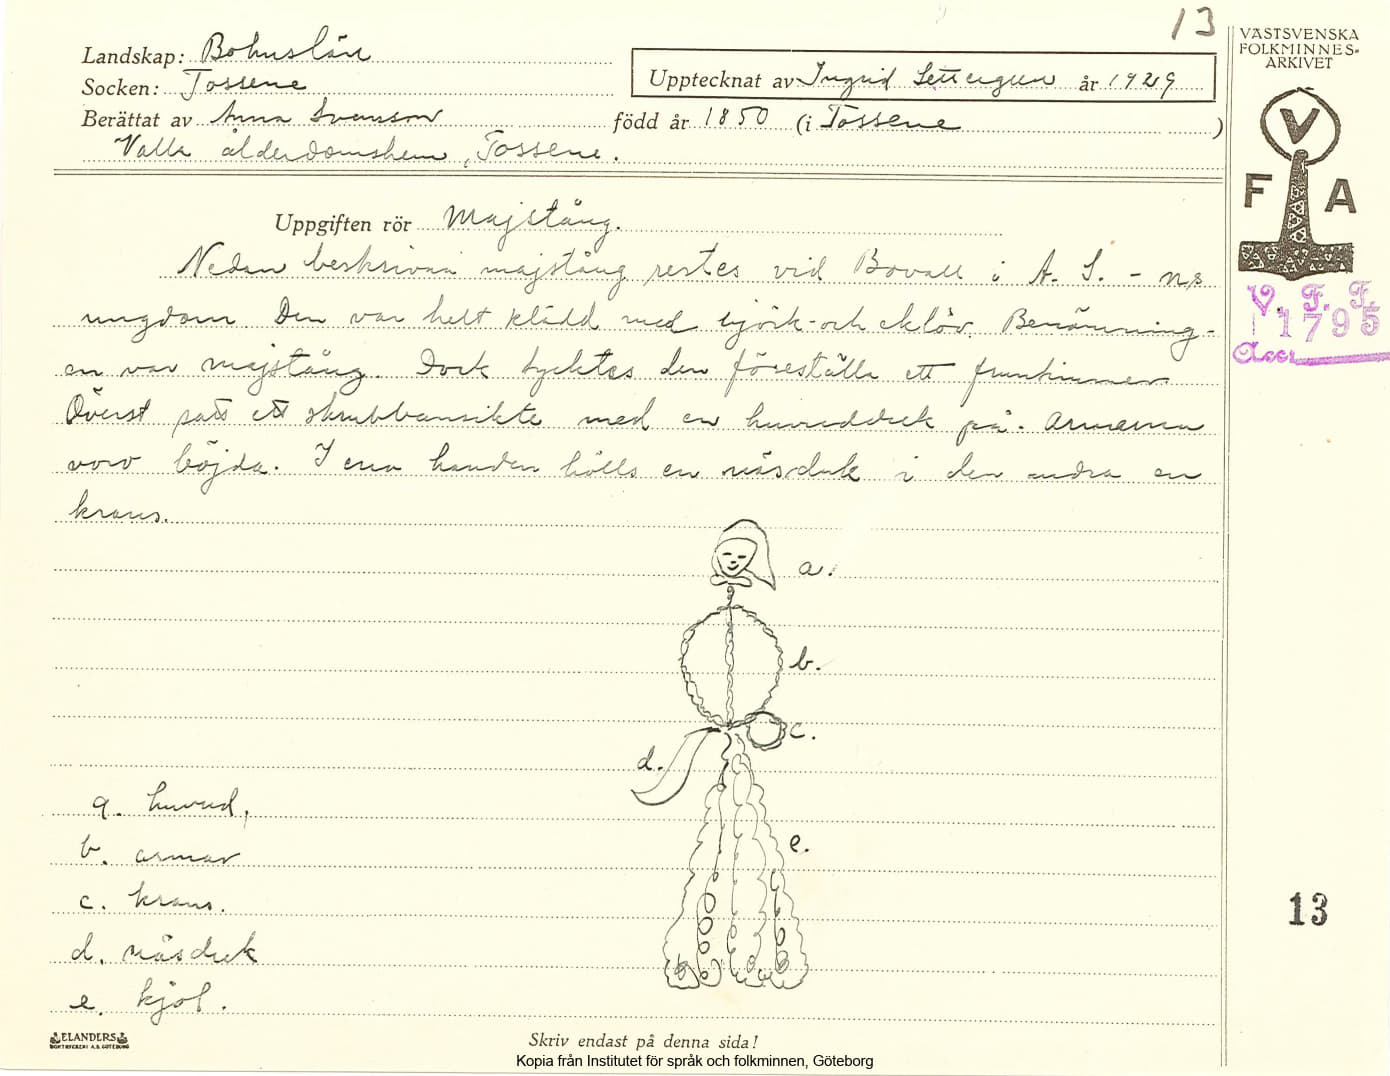 13
Landskap: Bohuslän
Socken: Tossene
Upptecknat av Ingrid Settergren år 1929
Berättat av Anna Svensson född år 1850 (i Tossene )
Valla ålderdomshem, Tossene.
VÄSTSVENSKA
FOLKMINNES-
ARKIVET
V
F A
V. F. F.
1795
Acc.
Uppgiften rör Majstång.
Nedan beskrivna majstång restes vid Bovall i A. S. - ns
ungdom. Den var helt klädd med björk- och eklöv. Benämning-
en var majstång. Dock tycktes den föreställa ett fruntimmer.
Överst satt ett skrubbansikte med en huvudduk på. Armarna
voro böjda. I ena handen hölls en näsduk i den andra en
krans.
a.
b.
c.
d.
e.
a. huvud,
b. armar
c. krans.
d. näsduk
e. kjol.
13
ELANDERS
BOKTRYCKERI A.B. GÖTEBORG
Skriv endast på denna sida!
Kopia från Institutet för språk och folkminnen, Göteborg